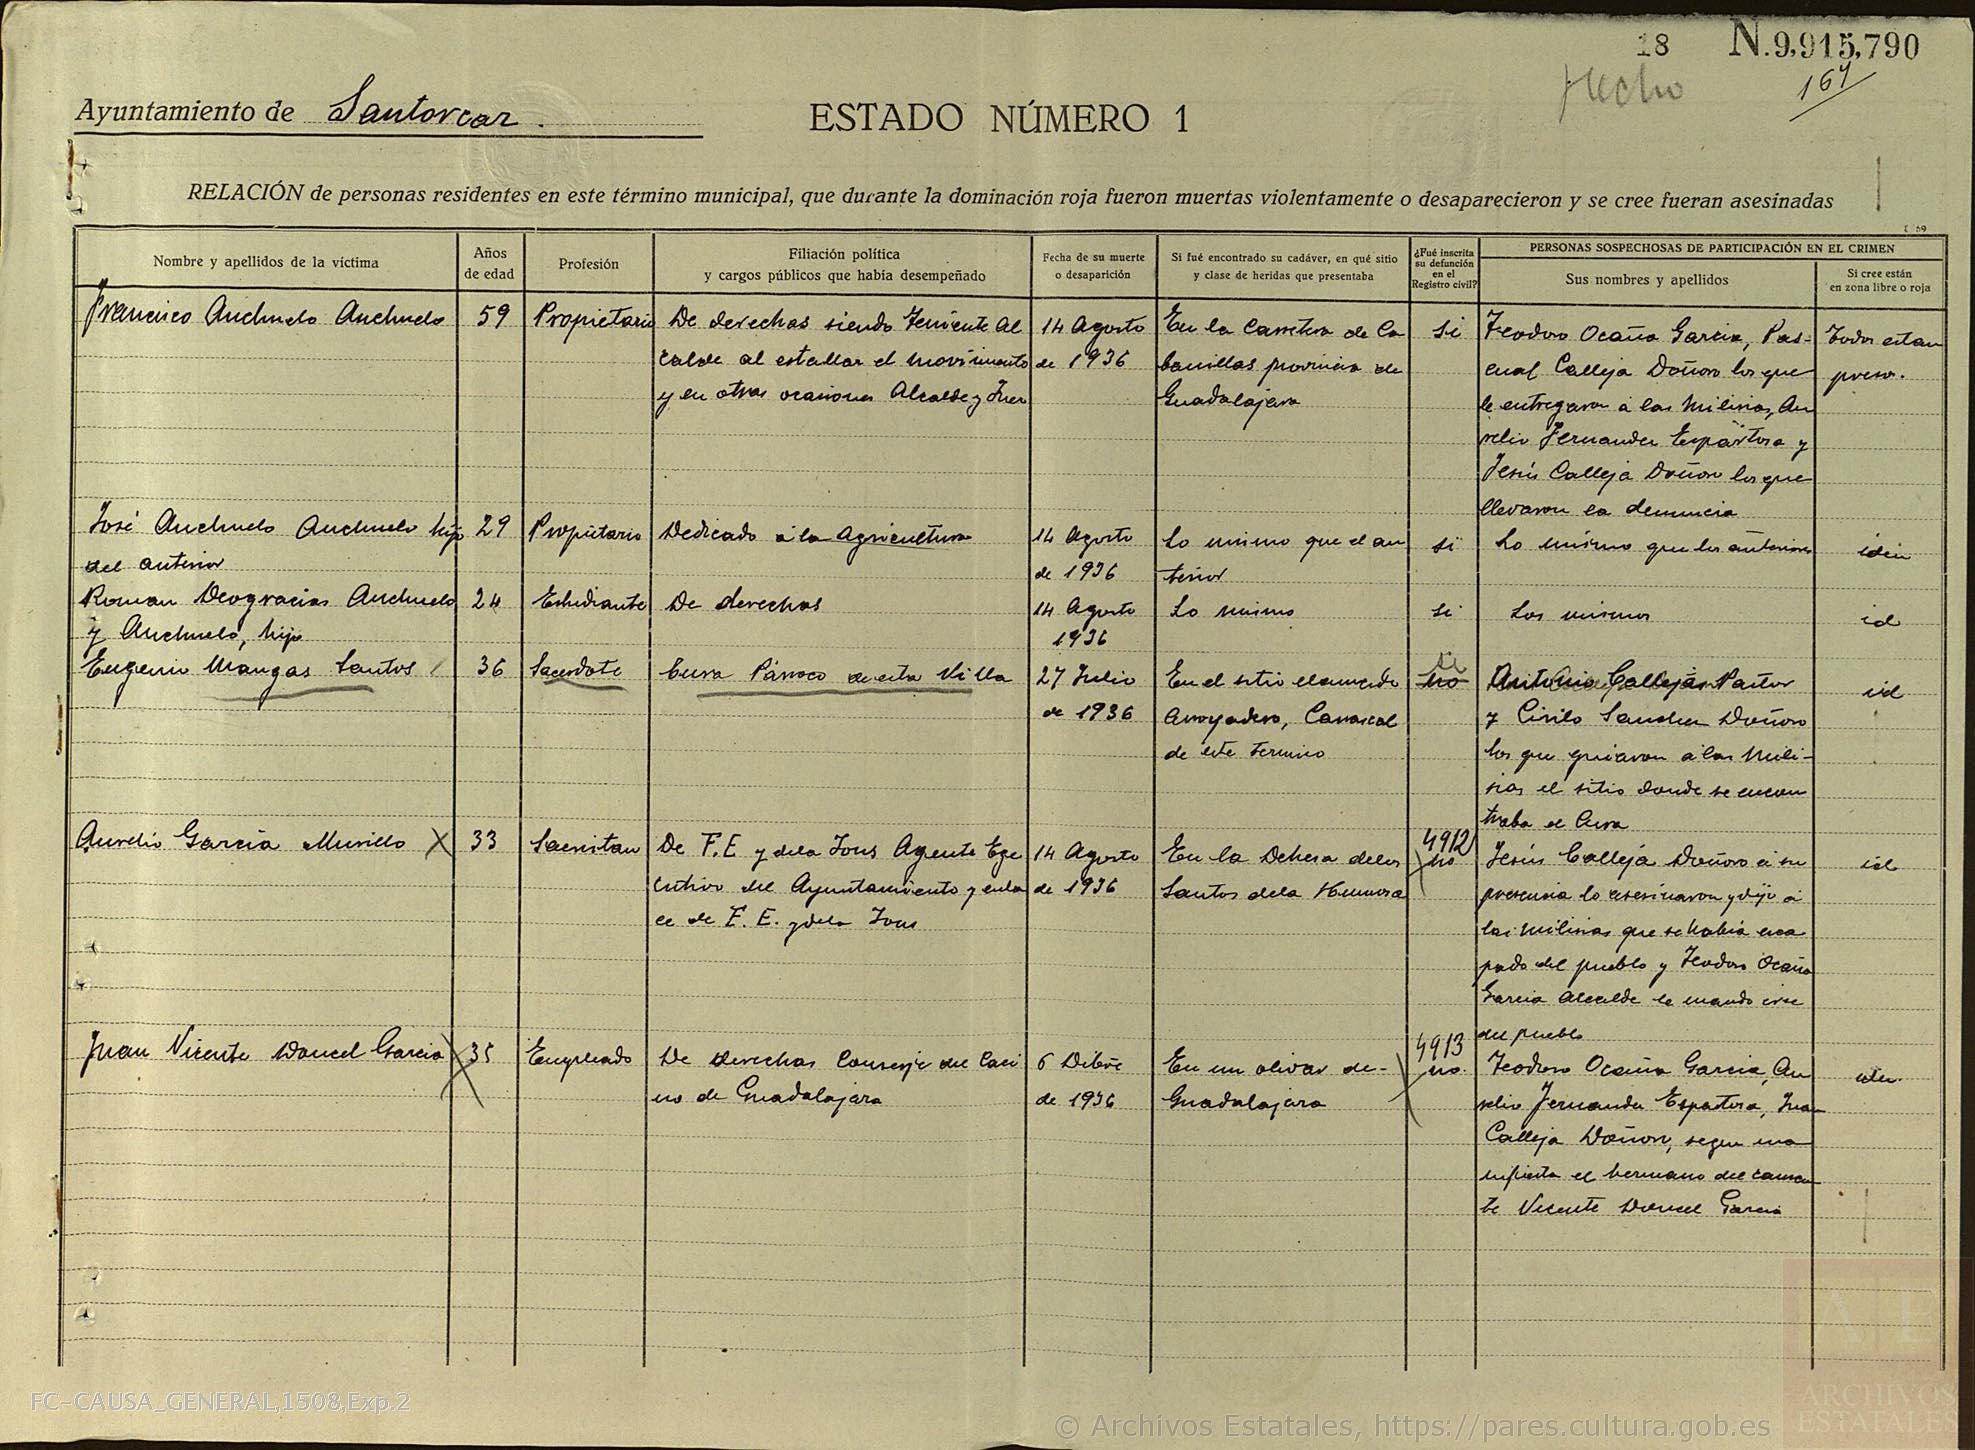 18 N.9,915,790
Hecho 164
Ayuntamiento de Santorcaz. ESTADO NÚMERO 1
RELACIÓN de personas residentes en este término municipal, que durante la dominación roja fueron muertas violentamente o desaparecieron y se cree fueran asesinadas
Nombre y apellidos de la víctima
Años
de edad
Profesión
Filiación política
y cargos públicos que había desempeñado
Fecha de su muerte
o desaparición
Si fué encontrado su cadáver, en qué sitio
y clase de heridas que presentaba
¿Fué inscrita
su defunción
en el
Registro civil?
PERSONAS SOSPECHOSAS DE PARTICIPACIÓN EN EL CRIMEN
Sus nombres y apellidos
Si cree están
en zona libre o roja
Francisco Anchuelo Anchuelo
59
Propietario
De derechas siendo Teniente Al
calde al estallar el movimiento
y en otras ocasiones Alcalde y Juez
14 Agosto
de 1936
En la Carretera de Ca
banillas provincia de
Guadalajara
si
Teodoro Ocaña Garcia, Pas-
cual Calleja Doñoro los que
le entregaron a las Milicias, Au
relio Fernandez Espartosa y
Jesús Calleja Doñoro los que
llevaron la denuncia
Todos estan
presos.
José Anchuelo Anchuelo hijo
del anterior
29
Propietario
Dedicado a la Agricultura
14 Agosto
de 1936
Lo mismo que el an
terior
si
Lo mismo que los anteriores
idem
Roman Deogracias Anchuelo
y Anchuelo, hijo
24
Estudiante
De derechas
14 Agosto
1936
Lo mismo
si
Los mismos
id
Eugenio Mangas Santos
36
Sacerdote
Cura Párroco de esta Villa
27 Julio
de 1936
En el sitio llamado
Arroyadero, Carrascal
de este termino
si
no
Antonio Callejas Pastor
y Cirilo Sanchez Doñoro
los que guiaron a las Mili-
cias el sitio donde se encon
traba el Cura
id
Aurelio García Murillo X
33
Sacristan
De F.E y de la Jons Agente Eje
cutivo del Ayuntamiento y enla
ce de F. E. y dela Jons
14 Agosto
de 1936
En la Dehesa de los
Santos dela Humosa
4912
no
Jesús Calleja Doñoro a su
presencia lo asesinaron y dijo a
las Milicias que se habia esca
pado del pueblo y Teodoro Ocaña
Garcia Alcalde le mando irse
del pueblo
id
Juan Vicente Doncel Garcia X
35
Empleado
De derechas Conserje del Casi
no de Guadalajara
6 Dibre
de 1936
En un olivar de-
Guadalajara
4913
no.
Teodoro Ocaña Garcia, Au
relio Fernandez Espartosa, Jua
Calleja Doñoro, segun ma
nifiesta el hermano del causan
te Vicente Doncel Garcia
idem.
FC-CAUSA_GENERAL,1508,Exp.2
© Archivos Estatales, https://pares.cultura.gob.es
ARCHIVOS
ESTATALES